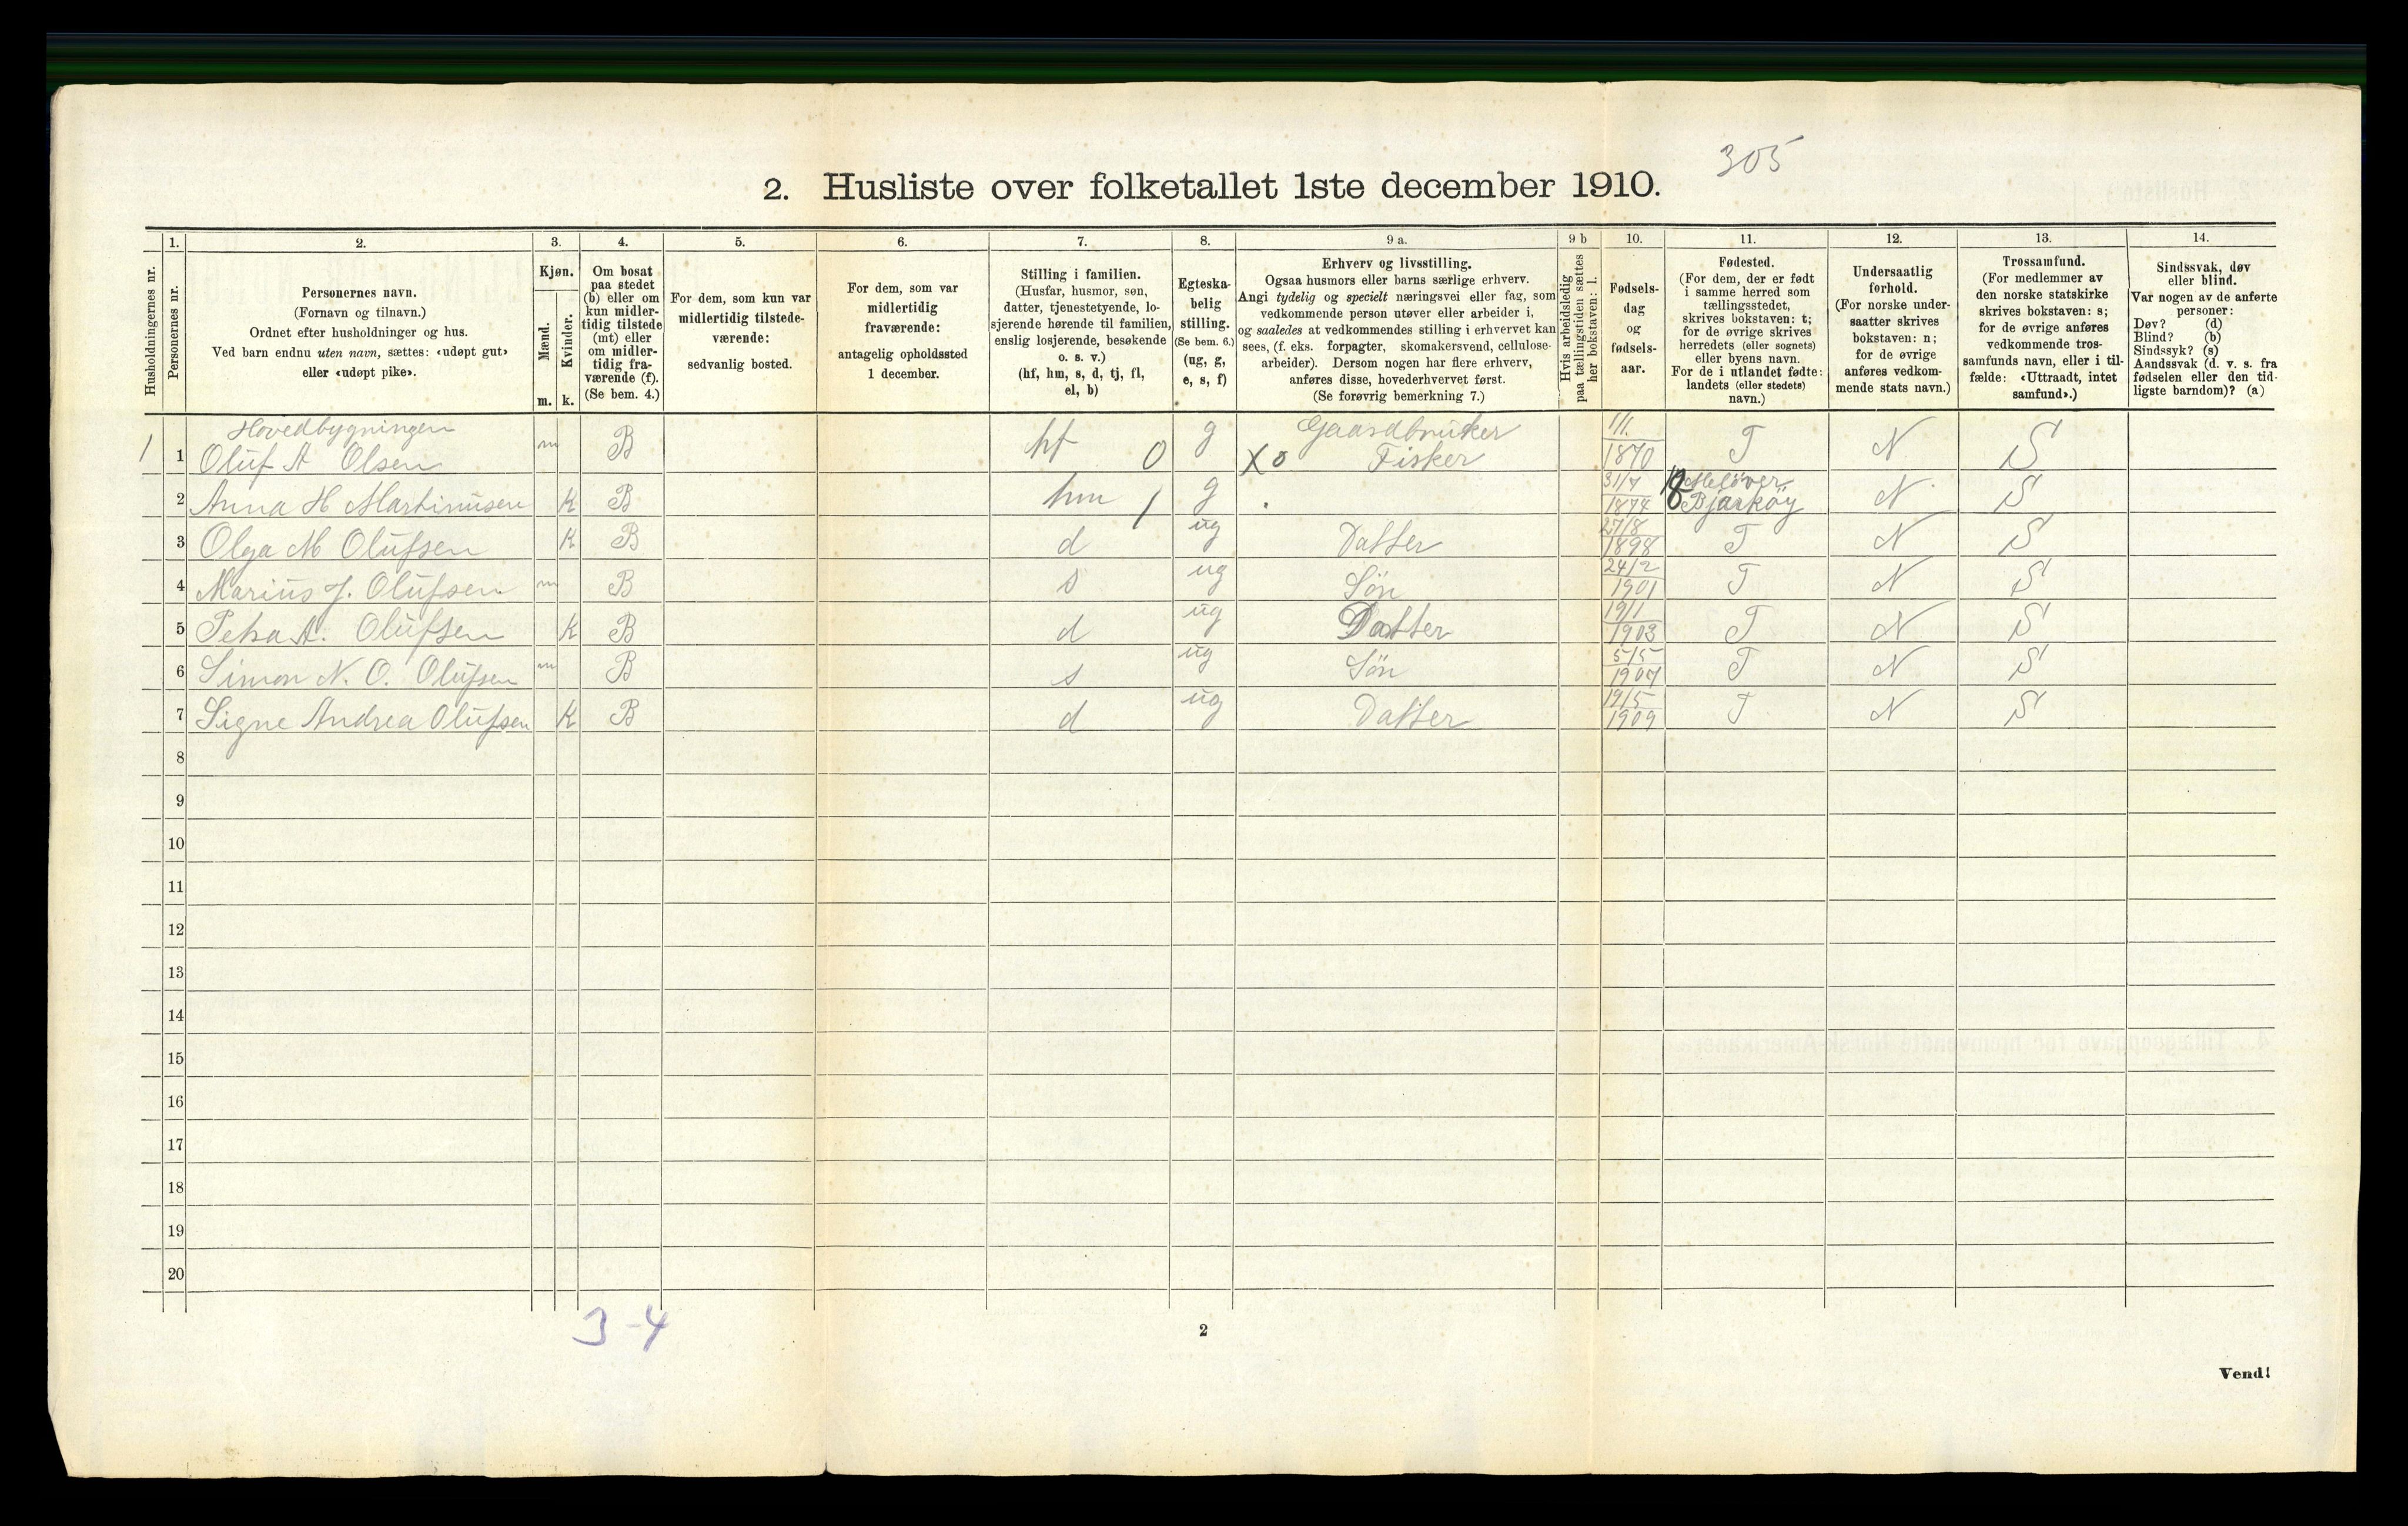 305
2. Husliste over folketallet 1ste december 1910.
Husholdningernes nr.
1.
Personernes nr.
2.
Personernes navn.
(Fornavn og tilnavn.)
Ordnet efter husholdninger og hus.
Ved barn endnu uten navn, sættes: «udøpt gut»
eller «udøpt pike».
3.
Kjøn.
Mænd.
Kvinder.
m. k.
4.
Om bosat
paa stedet
(b) eller om
kun midler-
tidig tilstede
(mt) eller
om midler-
tidig fra-
værende (f).
(Se bem. 4.)
5.
For dem, som kun var
midlertidig tilstede-
værende:
sedvanlig bosted.
6.
For dem, som var
midlertidig
fraværende:
antagelig opholdssted
1 december.
7.
Stilling i familien.
(Husfar, husmor, søn,
datter, tjenestetyende, lo-
sjerende hørende til familien,
enslig losjerende, besøkende
o. s. v.)
(hf, hm, s, d, tj, fl,
el, b)
8.
Egteska-
belig
stilling.
(Se bem. 6.)
(ug, g,
e, s, f)
9 a.
Erhverv og livsstilling.
Ogsaa husmors eller barns særlige erhverv.
Angi tydelig og specielt næringsvei eller fag, som
vedkommende person utøver eller arbeider i,
og saaledes at vedkommendes stilling i erhvervet kan
sees, (f. eks. forpagter, skomakersvend, cellulose-
arbeider). Dersom nogen har flere erhverv,
anføres disse, hovederhvervet først.
(Se forøvrig bemerkning 7.)
9 b
Hvis arbeidsledig
paa tællingstiden sættes
her bokstaven: l.
10.
Fødsels-
dag
og
fødsels-
aar.
11.
Fødested.
(For dem, der er født
i samme herred som
tællingsstedet,
skrives bokstaven: t;
for de øvrige skrives
herredets (eller sognets)
eller byens navn.
For de i utlandet fødte:
landets (eller stedets)
navn.)
12.
Undersaatlig
forhold.
(For norske under-
saatter skrives
bokstaven: n;
for de øvrige
anføres vedkom-
mende stats navn.)
13.
Trossamfund.
(For medlemmer av
den norske statskirke
skrives bokstaven: s;
for de øvrige anføres
vedkommende tros-
samfunds navn, eller i til-
fælde: «Uttraadt, intet
samfund».)
14.
Sindssvak, døv
eller blind.
Var nogen av de anførte
personer:
Døv? (d)
Blind? (b)
Sindssyk? (s)
Aandssvak (d. v. s. fra
fødselen eller den tid-
ligste barndom)? (a)
Hovedbygningen Gaardbruker 1/1
1 1 Oluf A Olsen m B hf 0 g X o Fisker 1870 T N S
31/7 Meløver
2 Anna H Martinusen K B hm 1 g 1874 Bjarköy N S
3 Olga M Olüfsen K B d ug Datter 27/8 1898 T N S
4 Marius J. Olüfsen m B s ug Sön 24/2 1901 T N S
5 Petra A. Olüfsen K B d ug Datter 19/1 1903 T N S
6 Simon N. O. Olüfsen m B s ug Sön 5/5 1907 T N S
7 Signe Andrea Olüfsen K B d ug Datter 19/5 1909 T N S
8
9
10
11
12
13
14
15
16
17
18
19
20
3-4
2
Vend!